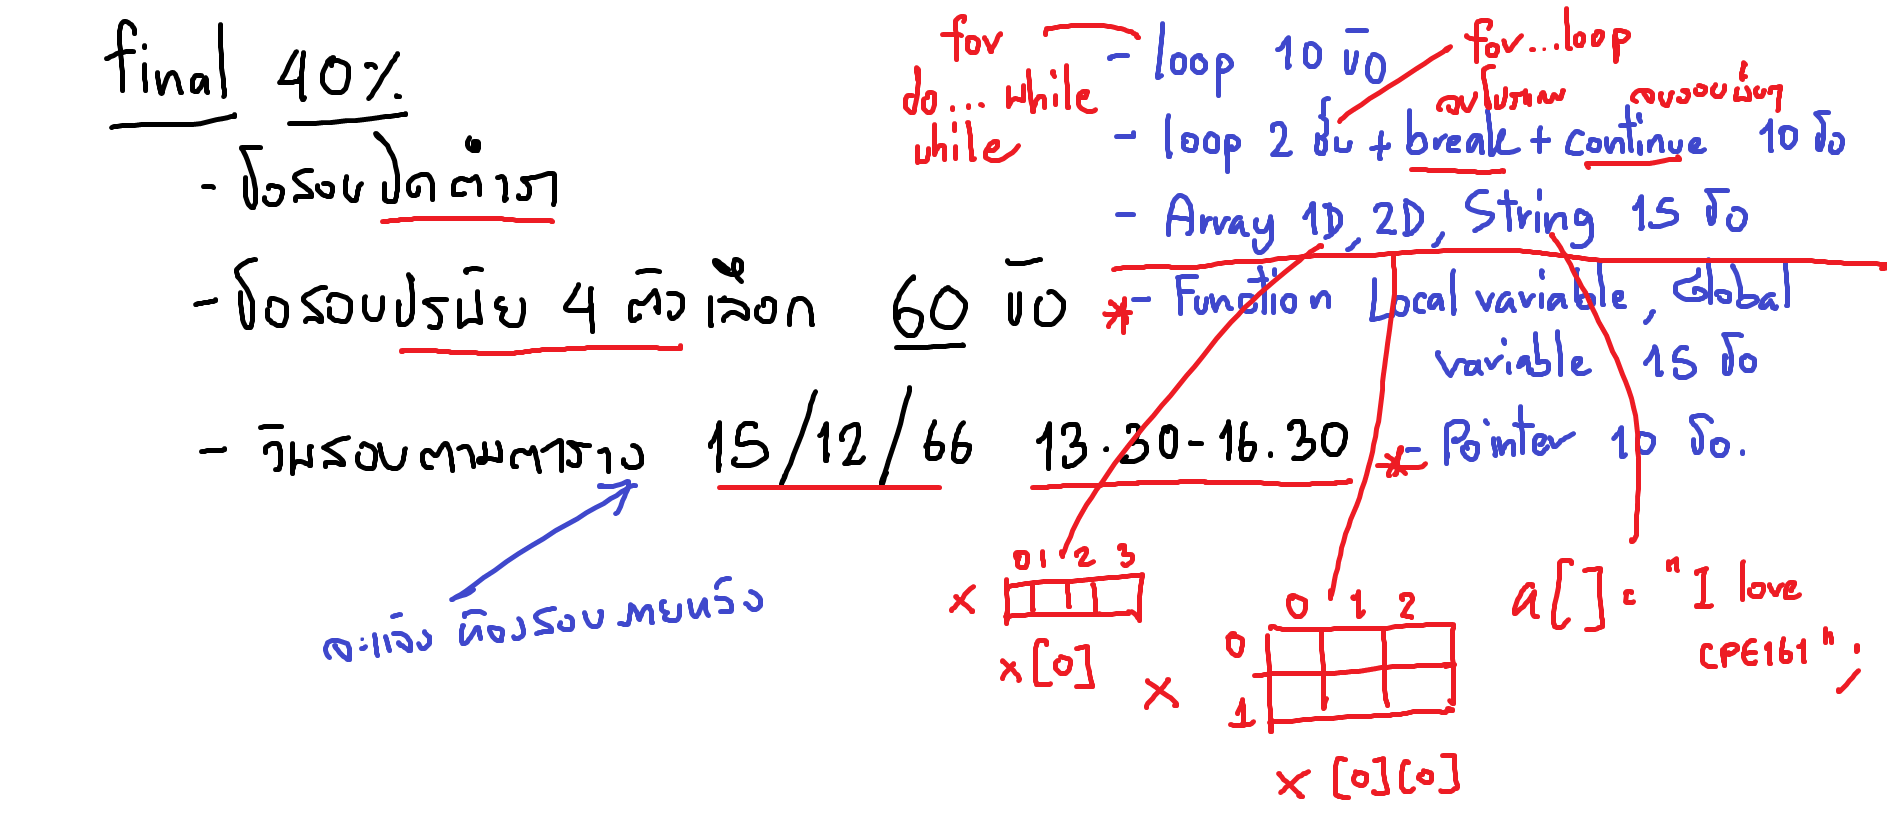 final 40%
- ข้อสอบปิดตำรา
- ข้อสอบปรนัย 4 ตัวเลือก 60 ข้อ
- วันสอบตามตาราง 15/12/66 13.30-16.30
จะแจ้งห้องสอบภายหลัง
for
do...while
while
- loop 10 ข้อ
for...loop
จบโปรแกรม
- loop 2 ชั้น + break + continue 10 ข้อ
- Array 1D, 2D, String 15 ข้อ
* - Function Local variable, Global
variable 15 ข้อ
* - Pointer 10 ข้อ.
0 1 2 3
x
x[0]
0 1 2
0
x
1
x [0][0]
a[] = "I love
CPE161";